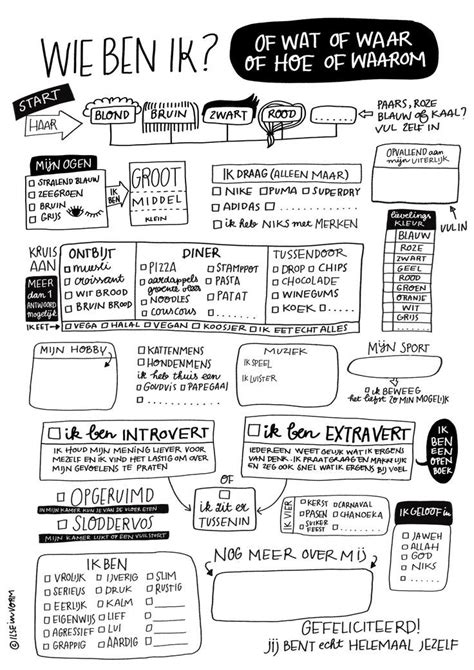 WIE BEN IK?
OF WAT OF WAAR
OF HOE OF WAAROM
START
HAAR
BLOND
BRUIN
ZWART
ROOD
........
PAARS, ROZE
BLAUW OF KAAL?
VUL ZELF IN
MIJN OGEN
STRALEND BLAUW
ZEEGROEN
BRUIN
GRIJS
IK BEN
GROOT
MIDDEL
KLEIN
IK DRAAG (ALLEEN MAAR)
NIKE PUMA SUPERDRY
ADIDAS ........
ik heb NIKS met MERKEN
OPVALLEND aan
mijn UITERLIJK
VUL IN
lievelings
KLEUR
BLAUW
ROZE
ZWART
GEEL
ROOD
GROEN
ORANJE
WIT
GRIJS
......
KRUIS
AAN
MEER
dan 1
ANTWOORD
mogelijk
ONTBIJT
muesli
croissant
WIT BROOD
BRUIN BROOD
DINER
PIZZA
aardappels
groente vlees
NOODLES
couscous
STAMPPOT
PASTA
PATAT
......
TUSSENDOOR
DROP CHIPS
CHOCOLADE
WINEGUMS
KOEK ......
IK EET
VEGA HALAL VEGAN KOOSJER IK EET ECHT ALLES
MIJN HOBBY
KATTENMENS
HONDENMENS
ik heb thuis een
GOUDVIS PAPEGAAI
........
MUZIEK
IK SPEEL
IK LUISTER
MIJN SPORT
ik BEWEEG
het liefst ZO MIN MOGELIJK
ik ben INTROVERT
IK HOUD MIJN MENING LIEVER VOOR
MEZELF EN IK VIND HET LASTIG OM OVER
MIJN GEVOELENS TE PRATEN
ik ben EXTRAVERT
IEDEREEN WEET GELIJK WAT IK ERGENS
VAN DENK. IK PRAAT GRAAG EN MAKKELIJK
EN ZEG OOK SNEL WAT IK ERGENS BIJ VOEL
IK
BEN
EEN
OPEN
BOEK
OF
ik zit er
TUSSENIN
OPGERUIMD
IN MIJN KAMER KUN JE VAN DE VLOER ETEN
SLODDERVOS
MIJN KAMER LIJKT OP EEN VUILSTORT
IK VIER
KERST
PASEN
SUIKER
FEEST
CARNAVAL
CHANOEKA
......
IK GELOOF in
JAWEH
ALLAH
GOD
NIKS
........
IK BEN
VROLIJK
SERIEUS
EERLIJK
EIGENWIJS
AGRESSIEF
GRAPPIG
IJVERIG
DRUK
KALM
LIEF
LUI
AARDIG
SLIM
RUSTIG
NOG MEER OVER MIJ
GEFELICITEERD!
jij BENT echt HELEMAAL JEZELF
© ILSE inVORM